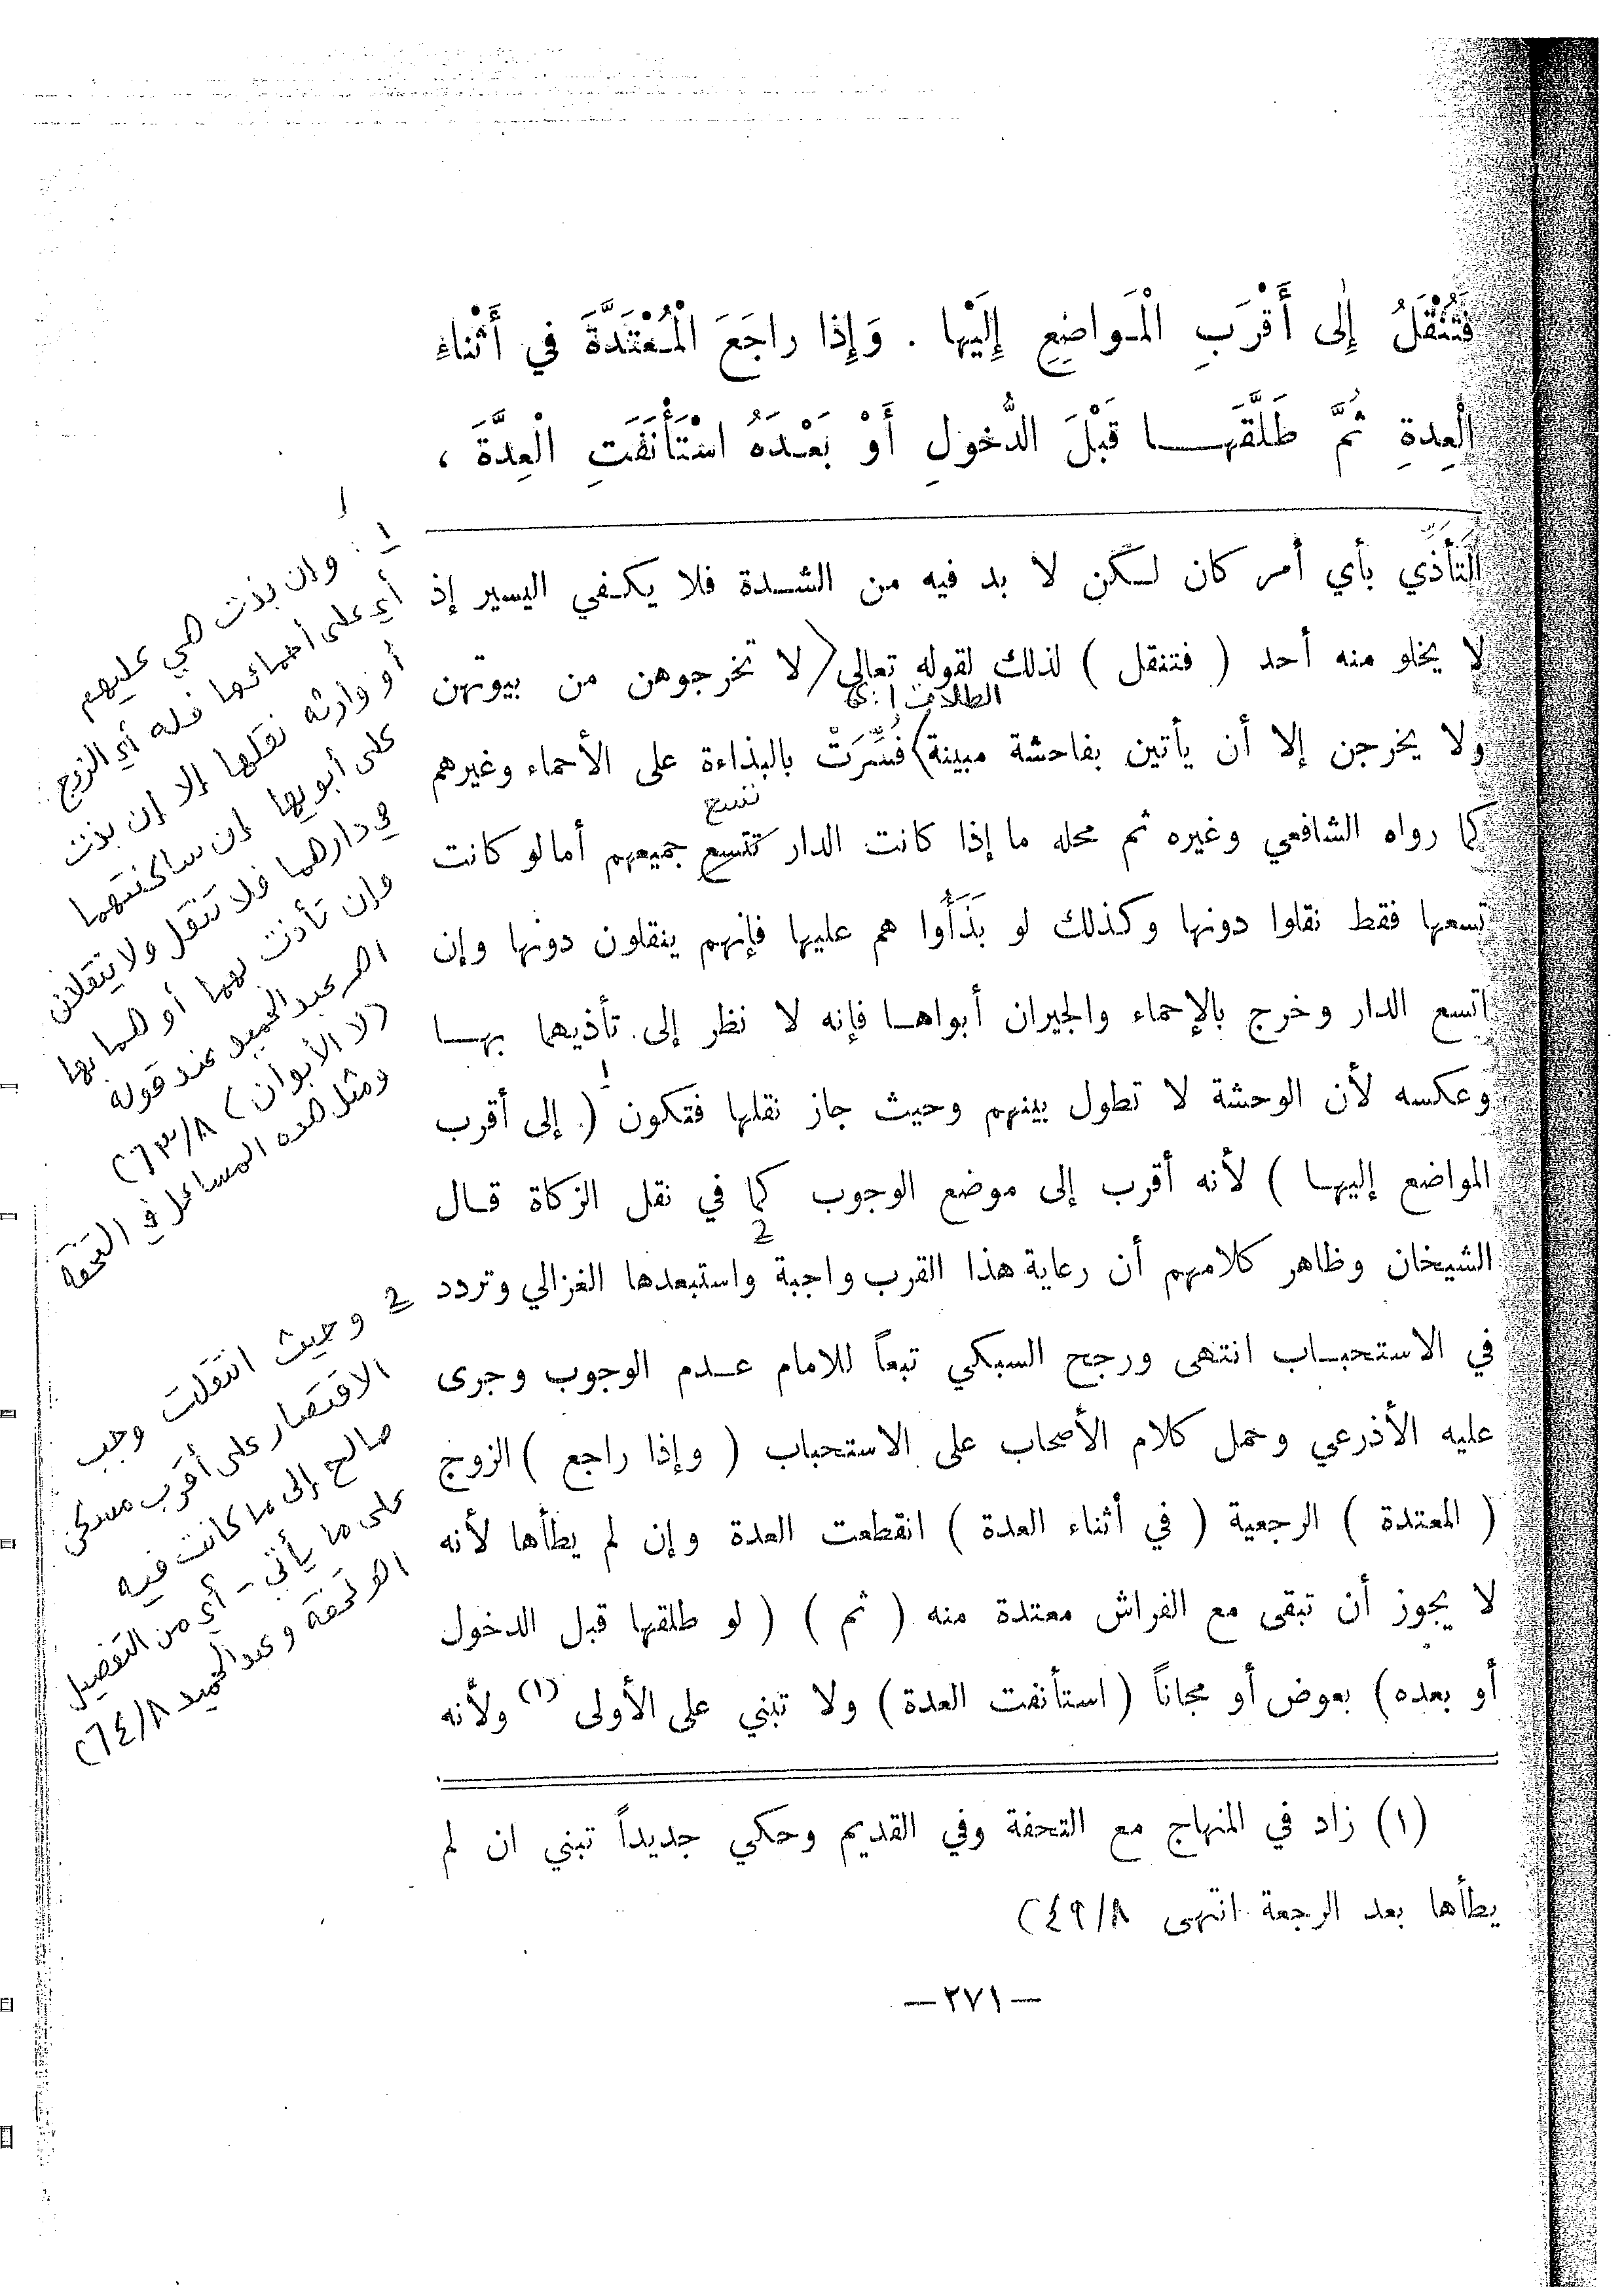 فَتُنْقَلُ إِلى أَقْرَبِ الْمَواضِعِ إِلَيْها . وَإِذا راجَعَ الْمُعْتَدَّةَ في أَثْناءِ
الْعِدةِ ثُمَّ طَلَّقَهـا قَبْلَ الدُّخولِ أَوْ بَعْدَهُ اسْتَأْنَفَتِ الْعِدَّةَ ،
التَّأَذِّي بأي أمر كان لكن لا بد فيه من الشدة فلا يكفي اليسير إذ
لا يخلو منه أحد ( فتنقل ) لذلك لقوله تعالى ( لا تخرجوهن من بيوتهن
الطلاق ١:
ولا يخرجن إلا أن يأتين بفاحشة مبينة) فُسِّرَتْ بالبذاءة على الأحماء وغيرهم
كما رواه الشافعي وغيره ثم محله ما إذا كانت الدار تتسع جميعهم أما لو كانت
تسع
تسعها فقط نقلوا دونها وكذلك لو بَذَأُوا هم عليها فإنهم ينقلون دونها وإن
اتسع الدار وخرج بالإحماء والجيران أبواها فإنه لا نظر إلى تأذيهما بها
وعكسه لأن الوحشة لا تطول بينهم وحيث جاز نقلها فتكون ( إلى أقرب
المواضع إليها ) لأنه أقرب إلى موضع الوجوب كما في نقل الزكاة قال
2
الشيخان وظاهر كلامهم أن رعاية هذا القرب واجبة واستبعدها الغزالي وتردد
في الاستحباب انتهى ورجح السبكي تبعاً للامام عدم الوجوب وجرى
عليه الأذرعي وحمل كلام الأصحاب على الاستحباب ( وإذا راجع ) الزوج
( المعتدة ) الرجعية ( في أثناء العدة ) انقطعت العدة وإن لم يطأها لأنه
لا يجوز أن تبقى مع الفراش معتدة منه ( ثم ) ( لو طلقها قبل الدخول
أو بعده) بعوض أو مجاناً (استأنفت العدة) ولا تبني على الأولى (١) ولأنه
(١) زاد في المنهاج مع التحفة وفي القديم وحكي جديداً تبني ان لم
يطأها بعد الرجعة انتهى ٤٩/٨)
—٢٧١—
1 : وإن بذت هي عليهم
أي على أحمائها فله أي الزوج
أو وارثه نقلها إلا إن بذت
على أبويها إن ساكنتهما
في دارهما فلا تنقل ولا ينقلان
وإن تأذت بهما أو هما بها
اهـ عبد الحميد عند قوله
(لا الأبوان) ٢٦٣/٨
ومثل هذه المسائل في التحفة
2 وحيث انتقلت وجب
الاقتصار على أقرب مسكن
صالح إلى ما كانت فيه
على ما يأتي - أي من التفصيل
اهـ تحفة وعبد الحميد ٢٦٤/٨